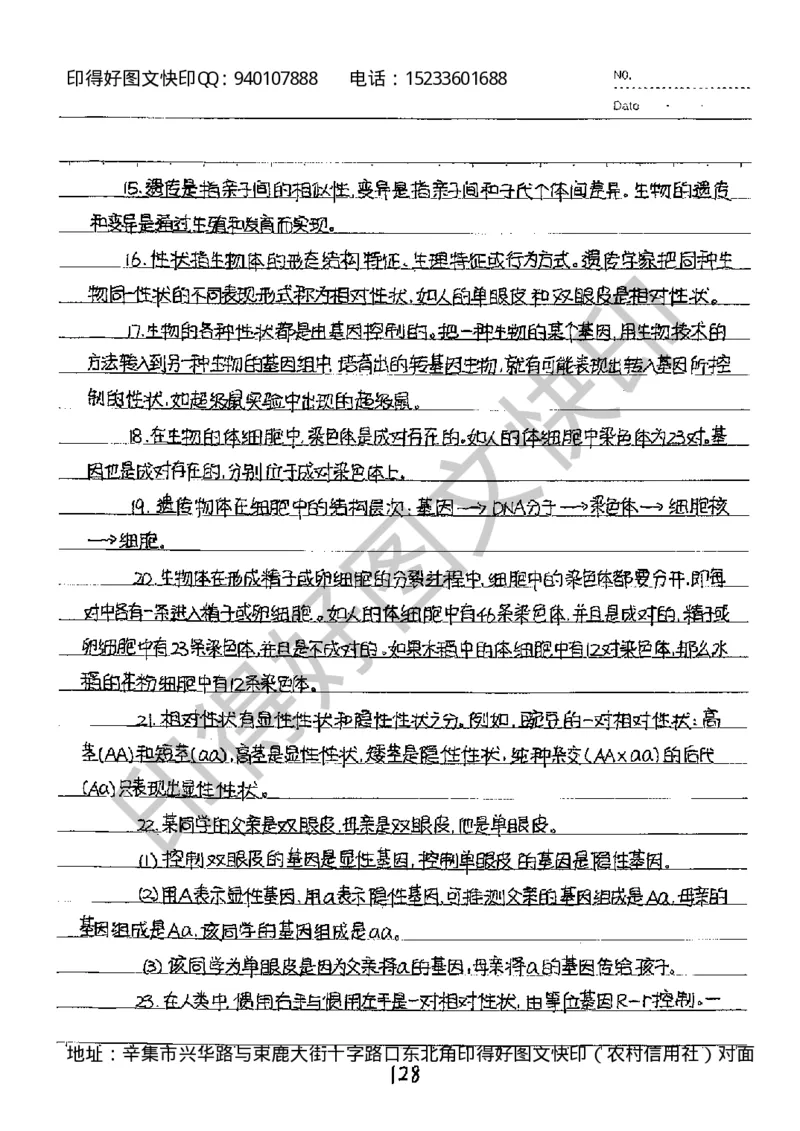 印得好图文快印QQ：940107888 电话：15233601688
NO.
Date
15.遗传是指亲子间的相似性,变异是指亲子间和子代个体间差异。生物的遗传
和变异是通过生殖和发育而实现。
16.性状指生物体的形态结构特征、生理特征或行为方式。遗传学家把同种生
物同一性状的不同表现形式称为相对性状,如人的单眼皮和双眼皮是相对性状。
17.生物的各种性状都是由基因控制的。把一种生物的某个基因,用生物技术的
方法转入到另一种生物的基因组中,培育出的转基因生物,就有可能表现出转入基因所控
制的性状,如超级鼠实验中出现的超级鼠。
18.在生物的体细胞中,染色体是成对存在的。如人的体细胞中染色体为23对。基
因也是成对存在的,分别位于成对染色体上。
19.遗传物体在细胞中的结构层次:基因→DNA分子→染色体→细胞核
→细胞。
20.生物体在形成精子或卵细胞的分裂过程中,细胞中的染色体都要分开,即每
对中各有一条进入精子或卵细胞。如人的体细胞中有46条染色体,并且是成对的,精子或
卵细胞中有23条染色体,并且是不成对的。如果水稻中的体细胞中有12对染色体,那么水
稻的花粉细胞中有12条染色体。
21.相对性状有显性性状和隐性性状之分。例如,豌豆的一对相对性状:高
茎(AA)和矮茎(aa),高茎是显性性状,矮茎是隐性性状,纯种杂交(AA×aa)的后代
(Aa)只表现出显性性状。
22.某同学的父亲是双眼皮,母亲是双眼皮,他是单眼皮。
(1)控制双眼皮的基因是显性基因,控制单眼皮的基因是隐性基因。
(2)用A表示显性基因,用a表示隐性基因,可推测父亲的基因组成是Aa,母亲的
基因组成是Aa,该同学的基因组成是aa。
(3)该同学为单眼皮是因为父亲将a的基因,母亲将a的基因传给孩子。
23.在人类中,惯用右手与惯用左手是一对相对性状,由等位基因R-r控制。一
地址：辛集市兴华路与束鹿大街十字路口东北角印得好图文快印（农村信用社）对面
128
印得好图文快印